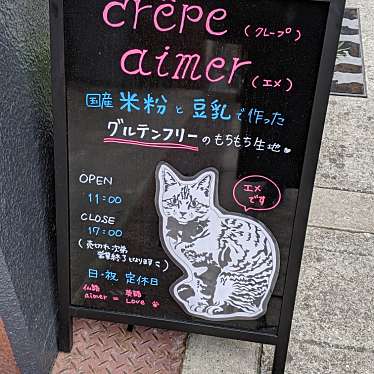 crêpe (クレープ)
aimer (エメ)
国産 米粉 と 豆乳 で作った
グルテンフリー のもちもち生地
OPEN
11:00
CLOSE
17:00
(売切れ次第
営業終了となります)
日・祝 定休日
仏語 英語
aimer = Love
エメ
です